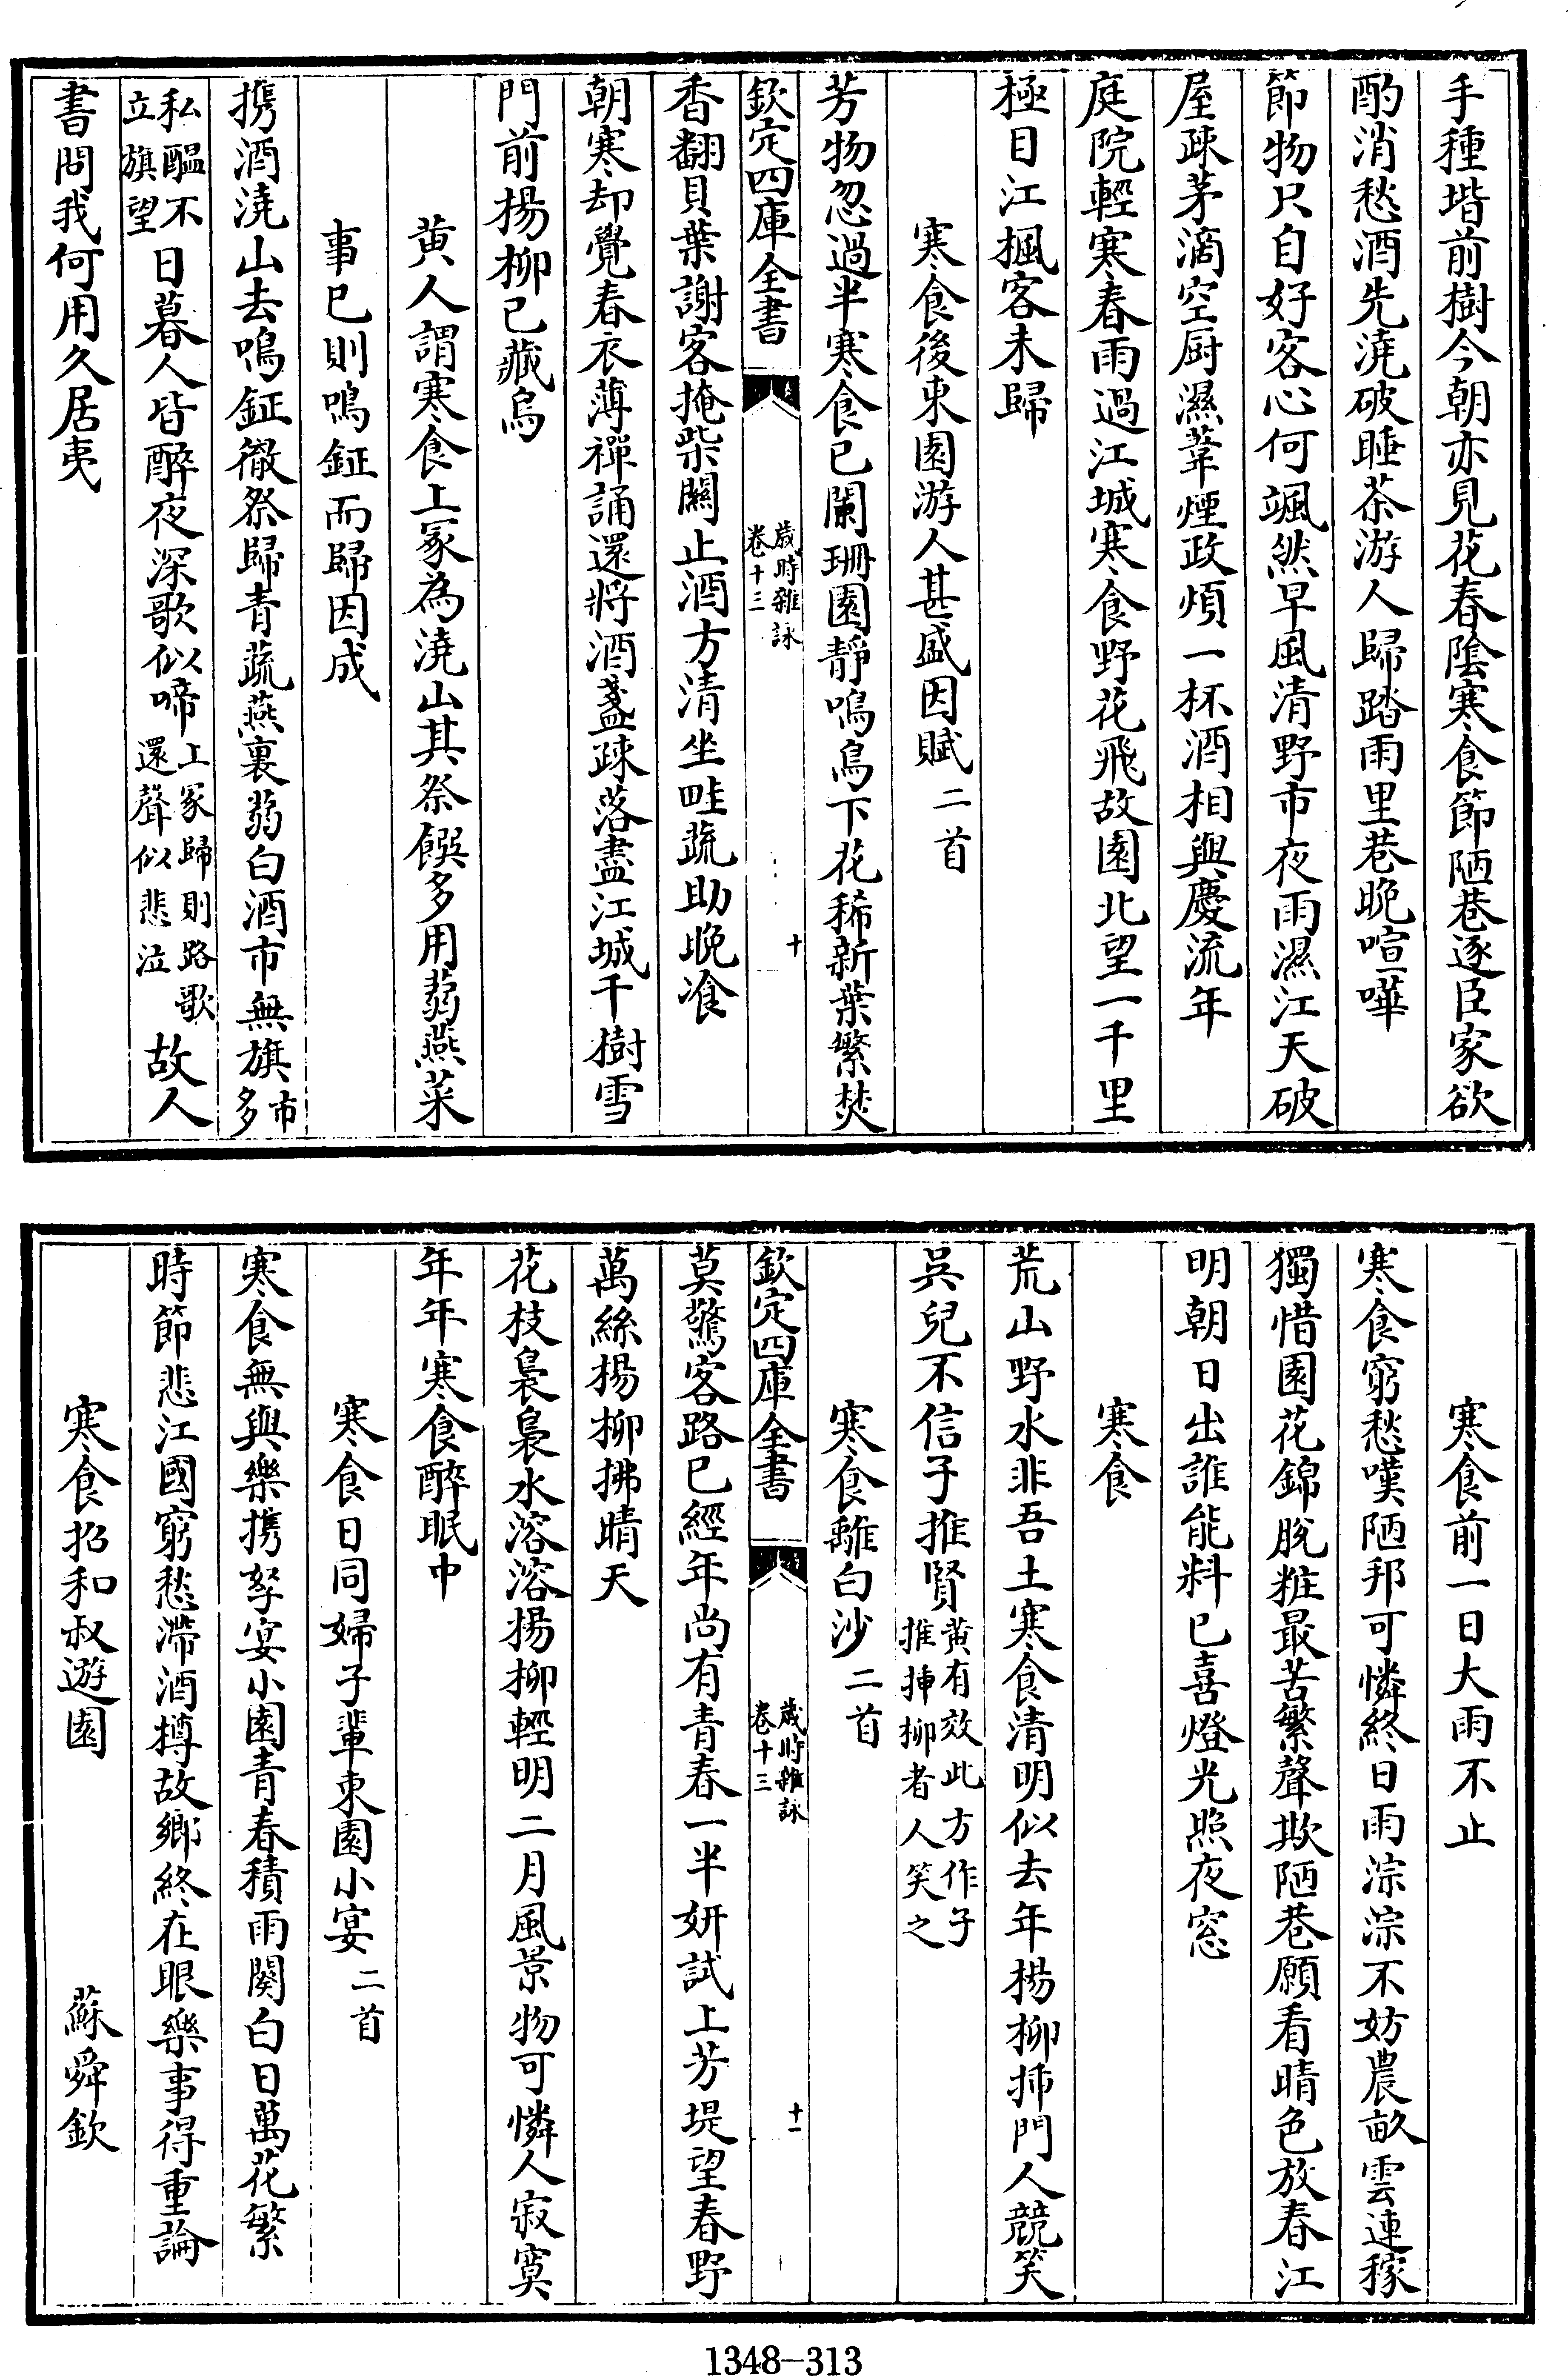 手種堦前樹今朝亦見花春陰寒食節陋巷逐臣家欲
酌消愁酒先澆破睡茶游人歸踏雨里巷晩喧嘩
節物只自好客心何颯然早風清野市夜雨濕江天破
屋疎茅滴空厨濕葦煙政煩一杯酒相與慶流年
庭院輕寒春雨過江城寒食野花飛故園北望一千里
極目江楓客未歸
寒食後東園游人甚盛因賦二首
芳物忽過半寒食已闌珊園靜鳴鳥下花稀新葉繁焚
欽定四庫全書
歲時雜詠
卷十三
十
香翻貝葉謝客掩柴關止酒方清坐畦蔬助晚飡
朝寒却覺春衣薄禪誦還將酒盞疎落盡江城千樹雪
門前楊柳已藏烏
黄人謂寒食上冢為澆山其祭饌多用蒻燕菜
事已則鳴鉦而歸因成
携酒澆山去鳴鉦徹祭歸青蔬燕裏蒻白酒市無旗市多
私醖不立旗望日暮人皆醉夜深歌似啼上冢歸則路歌還聲似悲泣故人
書問我何用久居夷
寒食前一日大雨不止
寒食窮愁嘆陋邦可憐終日雨淙淙不妨農畝雲連稼
獨惜園花錦脫粧最苦繁聲欺陋巷願看晴色放春江
明朝日出誰能料已喜燈光照夜窓
寒食
荒山野水非吾土寒食清明似去年楊柳揷門人競笑
吳兒不信子推賢黄有效此方作子推揷柳者人笑之
寒食離白沙二首
欽定四庫全書
歲時雜詠
卷十三
十一
莫驚客路已經年尚有青春一半妍試上芳堤望春野
萬絲楊柳拂晴天
花枝裊裊水溶溶楊柳輕明二月風景物可憐人寂寞
年年寒食醉眠中
寒食日同婦子輩東園小宴二首
寒食無與樂携孥宴小園青春積雨闋白日萬花繁
時節悲江國窮愁滯酒樽故鄉終在眼樂事得重論
寒食招和叔遊園
蘇舜欽
1348-313